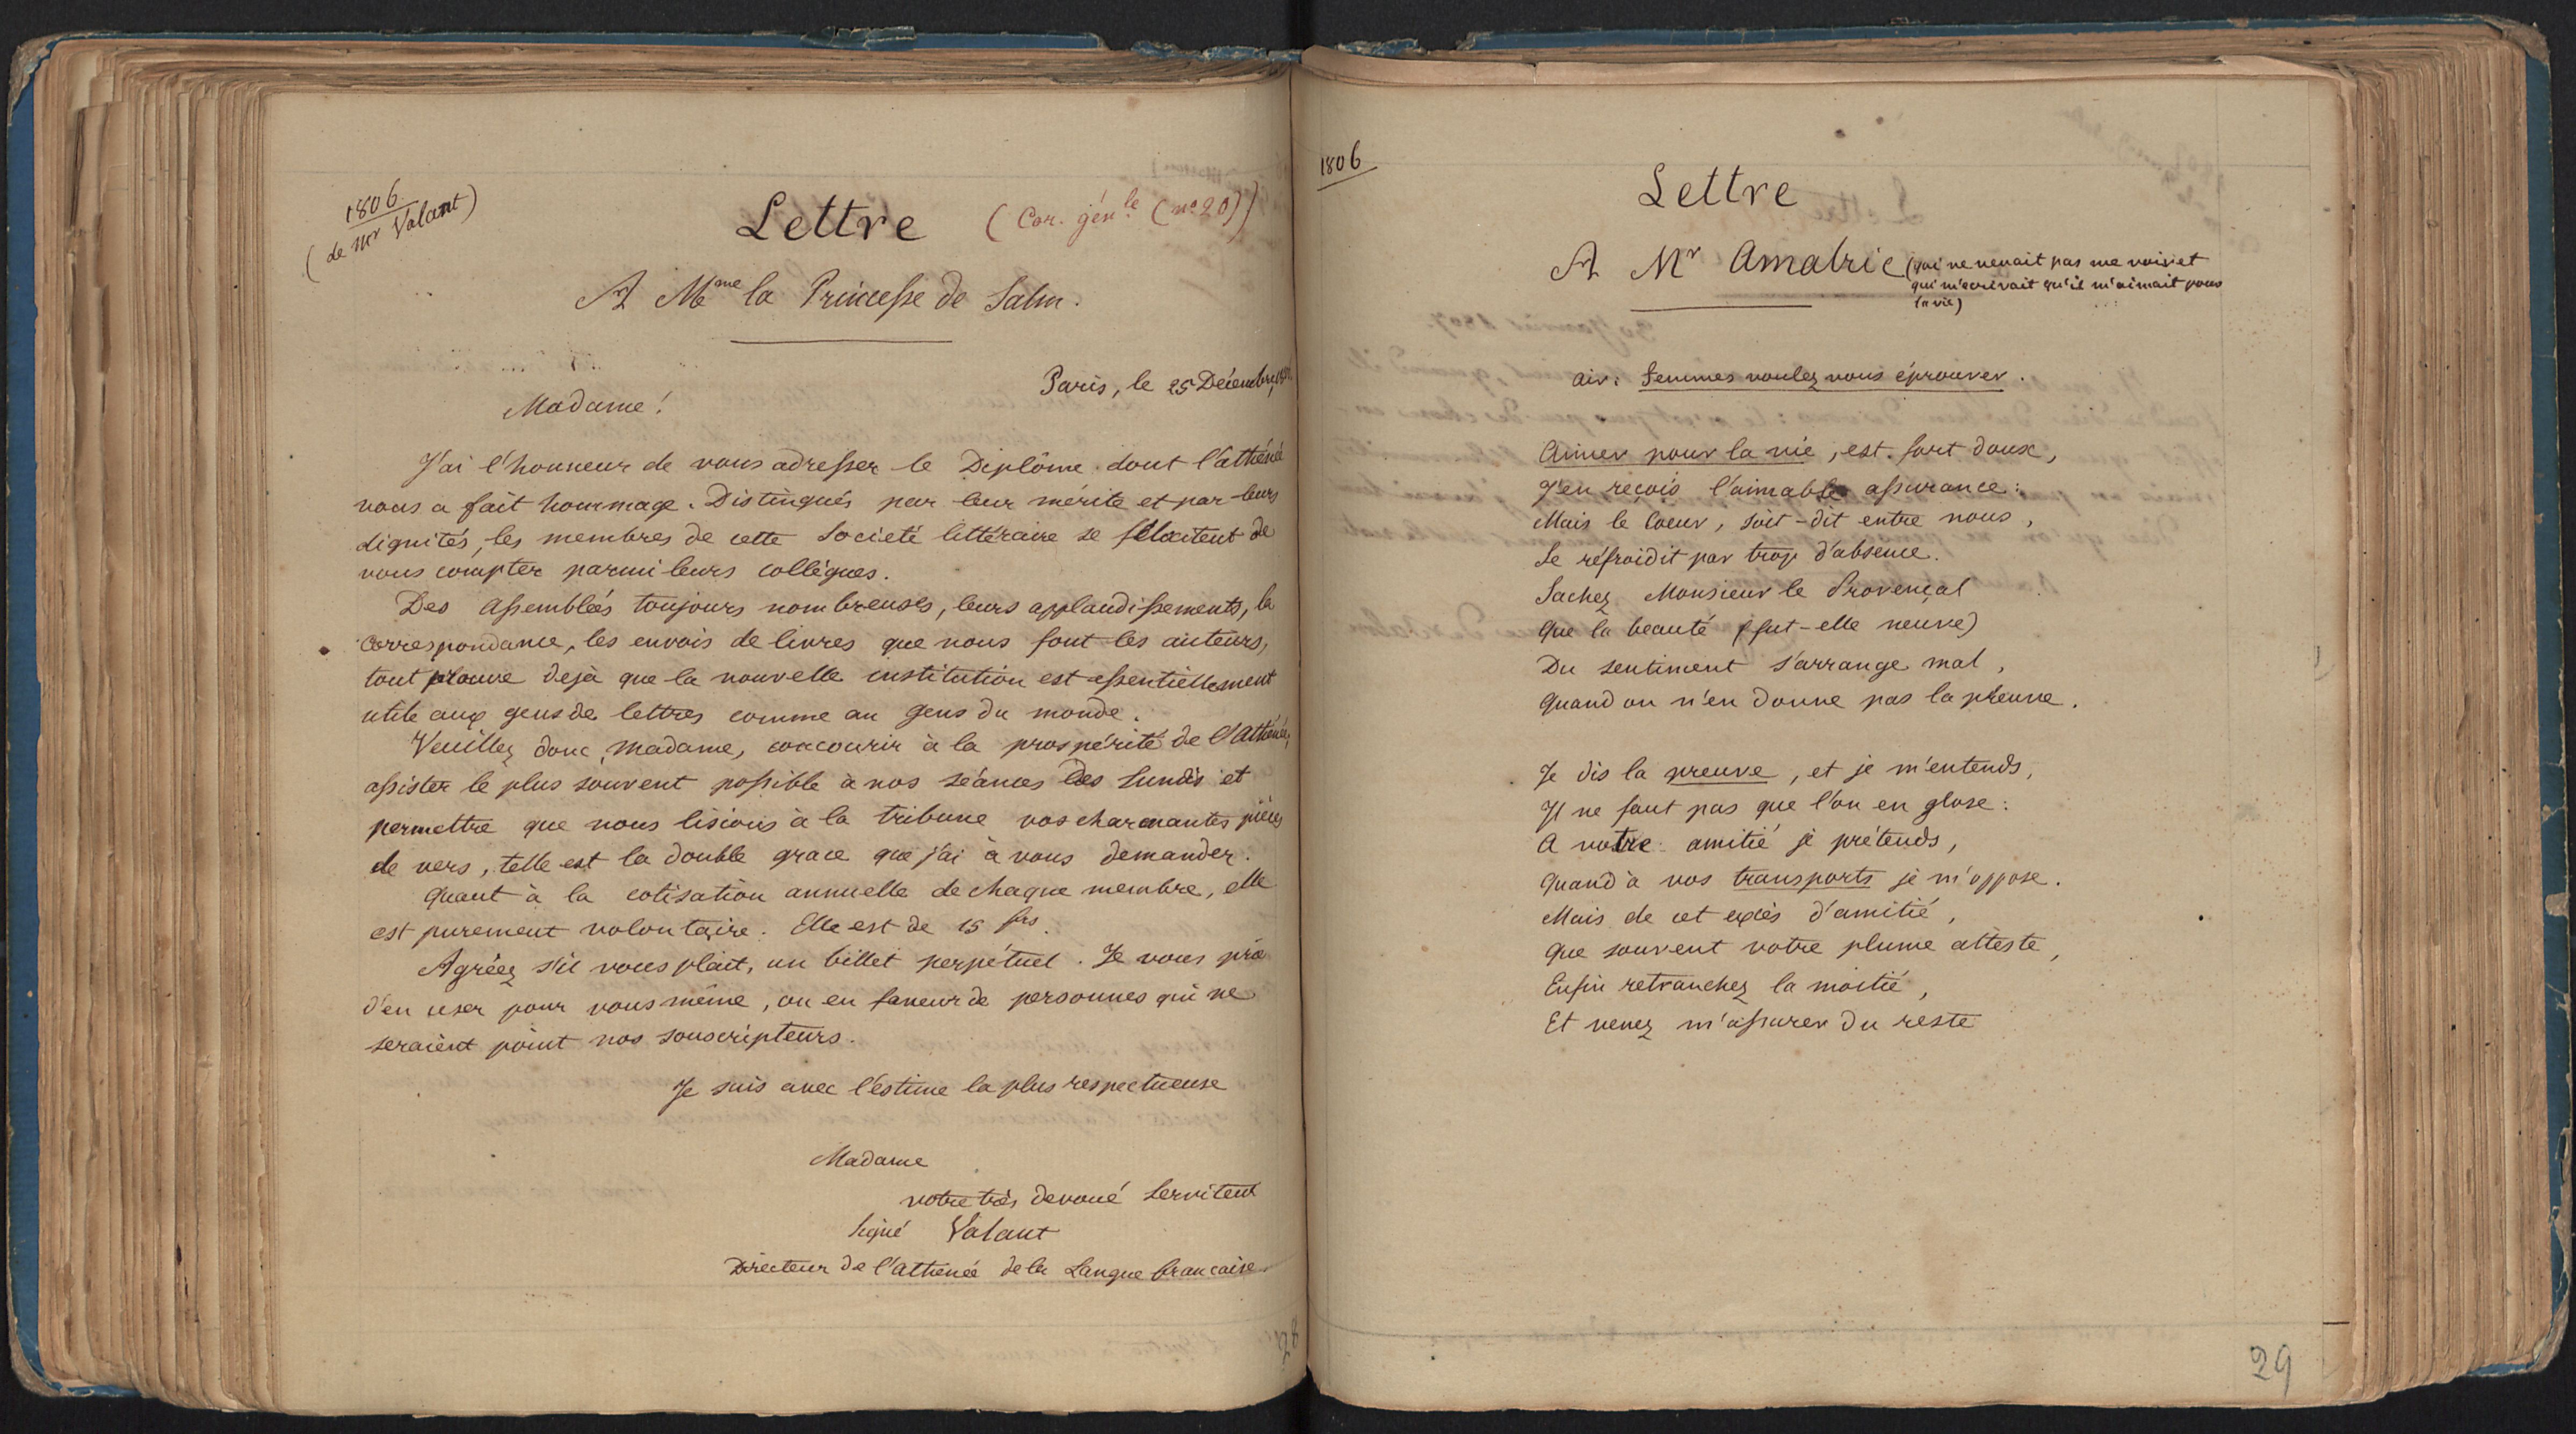 1806
(de Mr Valant)
Lettre (Cor. génle (no. 20))
A Mme la Princesse de Salm.
Paris, le 25 Décembre
Madame!
J'ai l'honneur de vous adresser le Diplôme dont l'athénée
vous a fait hommage. Distingués par leur mérite et par leurs
dignités, les membres de cette Societé littéraire se félicitent de
vous compter parmi leurs collègues.
Des assemblées toujours nombreuses, leurs applaudissements, la
correspondance, les envois de livres que nous font les auteurs,
tout prouve dejà que la nouvelle institution est essentiellement
utile aux gens de lettres comme au gens du monde.
Veuillez donc, Madame, concourir à la prospérité de l'Athénée,
assister le plus souvent possible à nos séances des Lundis et
permettre que nous lisions à la tribune vos charmantes pièces
de vers, telle est la double grace que j'ai à vous demander.
Quant à la cotisation annuelle de chaque membre, elle
est purement volontaire. Elle est de 15 frs.
Agréez s'il vous plait, un billet perpétuel. Je vous prie
d'en user pour vous même, ou en faveur de personnes qui ne
seraient point nos souscripteurs.
Je suis avec l'estime la plus respectueuse
Madame
votre très devoué Serviteur
Signé Valant
Directeur de l'athénée de la Langue francaise
28
1806
Lettre
A Mr Amalric (qui ne venait pas me voir et
qui m'ecrivait qu'il m'aimait pour
la vie)
air: Femmes voulez vous éprouver.
Aimer pour la vie, est fort doux,
J'en reçois l'aimable assurance:
Mais le Coeur, soit-dit entre nous,
Se réfroidit par trop d'absence.
Sachez Monsieur le Provençal
Que la beauté (fut-elle neuve)
Du sentiment s'arrange mal,
Quand on n'en donne pas la preuve.
Je dis la preuve, et je m'entends,
Il ne faut pas que l'on en glose:
A votre amitié je prétends,
Quand à vos transports je m'oppose.
Mais de cet excès d'amitié,
Que souvent votre plume atteste,
Enfin retranchez la moitié,
Et venez m'assurer du reste
29